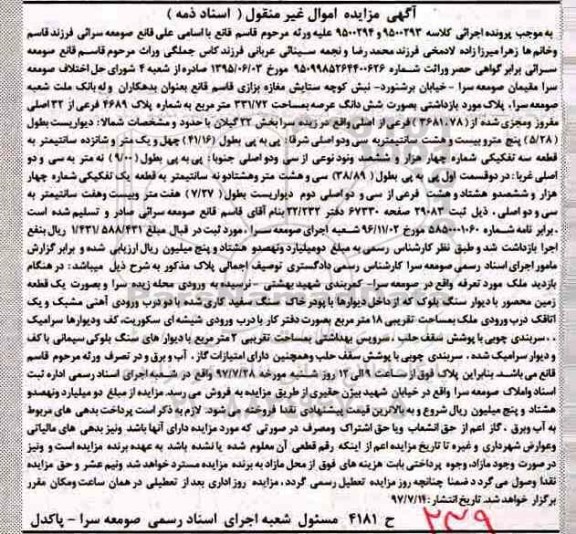 آگهی مزایده اموال غیر منقول ( اسناد ذمه )
به موجب پرونده اجرائی کلاسه ۹۵۰۰۲۹۳ و ۹۵۰۰۲۹۴ علیه ورثه مرحوم قاسم قانع با اسامی علی قانع صومعه سرائی فرزند قاسم
وخانم ها زهرا میرزا زاده لادمخی فرزند محمد رضا و نجمه سینائی عربانی فرزند کاس جملگی وراث مرحوم قاسم قانع صومعه
سرائی برابر گواهی حصر وراثت شماره ۹۵۰۹۹۸۵۲۶۴۴۰۰۶۲۶ مورخ ۱۳۹۵/۰۶/۰۳ صادره از شعبه ۴ شورای حل اختلاف صومعه
سرا مقیمان صومعه سرا - خیابان برشنورد- نبش کوچه ستایش مغازه بزازی قاسم قانع بعنوان بدهکاران و له بانک ملت شعبه
صومعه سرا، پلاک مورد بازداشتی بصورت شش دانگ عرصه بمساحت ۳۳۱/۷۲ متر مربع به شماره پلاک ۴۶۸۹ فرعی از ۳۲ اصلی
مفروز ومجزی شده از (۳۶۸۱،۷۸) فرعی از اصلی واقع در زیده سرا بخش ۲۲ گیلان با حدود و مشخصات شمالا: دیواریست بطول
(۵/۲۸) پنج متر و بیست و هشت سانتیمتر به سی ودو اصلی شرقا: پی به پی بطول (۴۱/۱۶) چهل و یک متر و شانزده سانتیمتر به
قطعه سه تفکیکی شماره چهار هزار و ششصد ونود نوعی از سی ودو اصلی جنوبا: پی به پی بطول (۹/۰۰) نه متر به سی و دو
اصلی غربا: در دوقسمت اول پی به پی بطول (۳۸/۸۹) سی و هشت متر وهشتادو نه سانتیمتر به قطعه یک تفکیکی شماره چهار
هزار و ششصدو هشتاد و هشت فرعی از سی و دو اصلی دوم دیواریست بطول (۷/۲۷) هفت متر وبیست وهفت سانتیمتر به
سی و دو اصلی، ذیل ثبت ۲۹۰۸۳ صفحه ۶۷۳۳۰ دفتر ۲۲/۲۳۲ بنام آقای قاسم قانع صومعه سرائی صادر و تسلیم شده است
.برابر نامه شماره ۵۸۵۰۰۰۱۰۶۰ مورخ ۹۶/۱۱/۰۲ شعبه اجرای صومعه سرا ،مورد ثبت در قبال مبلغ ۱/۴۳۱/۵۸۸/۴۳۱ ریال بنفع
اجرا بازداشت شد و طبق نظر کارشناس رسمی به مبلغ دومیلیارد ونهصدو هشتاد و پنج میلیون ریال ارزیابی شده و برابر گزارش
مامور اجرای اسناد رسمی صومعه سرا کارشناس رسمی دادگستری توصیف اجمالی پلاک مذکور به شرح ذیل میباشد: در هنگام
بازدید ملک مورد تعرفه واقع در صومعه سرا- کمربندی شهید بهشتی - نرسیده به ورودی محله زیده سرا و بصورت یک قطعه
زمین محصور با دیوار سنگ بلوک که از داخل دیوارها با پودر خاک سنگ سفید کاری شده با دو درب ورودی آهنی مشبک و یک
اتاقک درب ورودی ملک بمساحت تقریبی ۱۸ متر مربع بصورت دفتر کار با درب ورودی شیشه ای سکوریت، کف ودیوارها سرامیک
..سربندی چوبی با پوشش سقف حلب ، سرویس بهداشتی بمساحت تقریبی ۲ متر مربع با دیوار های سنگ بلوکی سیمانی با کف
و دیوار سرامیک شده . سربندی چوبی با پوشش سقف حلب وهمچنین دارای امتیازات گاز ، آب و برق و در تصرف ورثه مرحوم قاسم
قانع می باشند. بنابراین پلاک فوق از ساعت ۹ الی ۱۲ روز شنبه مورخه ۹۷/۷/۲۸ واقع در شعبه اجرای اسناد رسمی اداره ثبت
اسناد واملاک صومعه سرا واقع در خیابان شهید بیژن حقیری از طریق مزایده به فروش می رسد. مزایده از مبلغ دو میلیارد ونهصدو
هشتاد و پنج میلیون ریال شروع و به بالاترین قیمت پیشنهادی نقدا فروخته می شود. لازم به ذکر است پرداخت بدهی های مربوط
به آب وبرق ، گاز اعم از حق انشعاب ویا حق اشتراک ومصرف در صورتی که مورد مزایده دارای آنها باشد ونیز بدهی های مالیاتی
وعوارض شهرداری و غیره تا تاریخ مزایده اعم از اینکه رقم قطعی آن معلوم شده یا نشده باشد به عهده برنده مزایده است و ونیز
در صورت وجود مازاد، وجوه پرداختی بابت هزینه های فوق از محل مازاد به برنده مزایده مسترد خواهد شد ونیم عشر و حق مزایده
نقدا وصول می گردد ضمنا چنانچه روز مزایده تعطیل رسمی گردد، مزایده روز اداری بعد از تعطیلی در همان ساعت ومکان مقرر
برگزار خواهد شد. تاریخ انتشار: ۹۷/۷/۱۴
ح ۴۱۸۱ مسئول شعبه اجرای اسناد رسمی صومعه سرا - پاکدل
۲۳۹